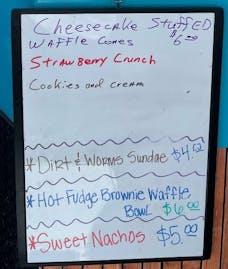 Cheesecake Stuffed
Waffle Cones $6.00
Strawberry Crunch
Cookies and cream
*Dirt & Worms Sundae $4.50
*Hot Fudge Brownie Waffle
Bowl $6.00
*Sweet Nachos $5.00